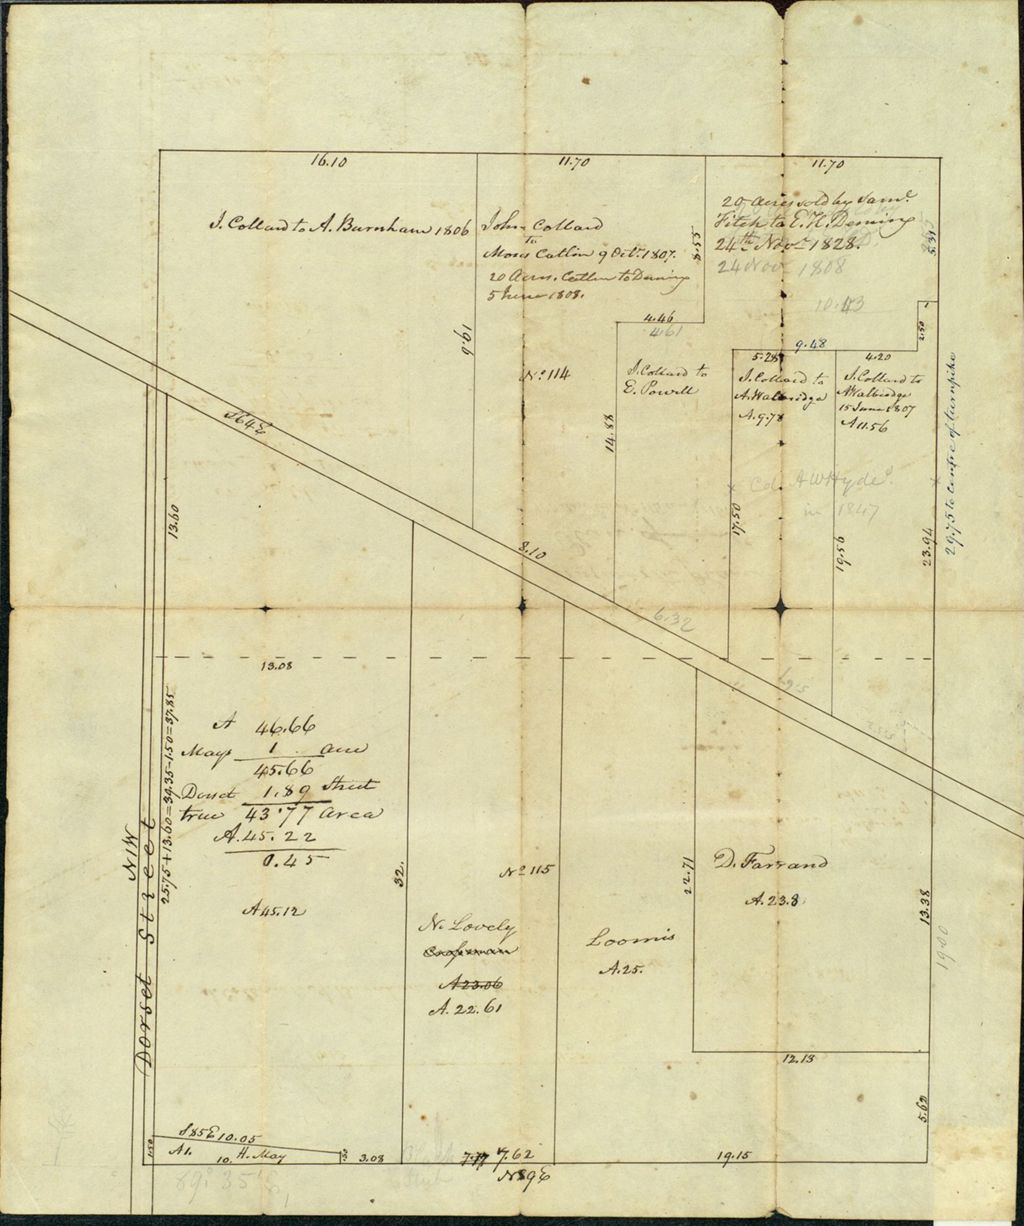 16.10
11.70
11.70
J. Collard to A. Burnham 1806
John Collard
to
Moses Catlin 9 Octr. 1807.
20 Acres. Catlin to Deming
5 June 1808.
8.55
20 Acres sold by Saml.
Fitch to E. H. Deming
24th Novr. 1828.
24 Nov 1808
5.31
10.43
19.6
4.46
4.61
No. 114
J. Collard to
E. Powell
14.88
9.48
2.50
5.28
4.20
J. Collard to
A. Walbridge
A. 9.78
J. Collard to
A Walbridge
15 June 1807
A 11.56
Col. A W Hyde
in 1847
17.50
19.56
23.94
29.75 to centre of turnpike
S64E
8.10
6.32
13.60
13.08
25.75+13.60=39.35-1.50=37.85
A 46.66
Mays 1 acre
45.66
Dorset 1.89 Street
true 43.77 area
A. 45.22
0.45
A 45.12
N1W
Dorset Street
32.
No. 115
N. Lovely
A 23.06
A. 22.61
Loomis
A. 25.
22.71
D. Farrand
A. 23.8
13.38
19.00
12.13
5.62
S85E 10.05
A1.
10. H. May
1.50
.50
3.08
7.77 7.62
19.15
N89E